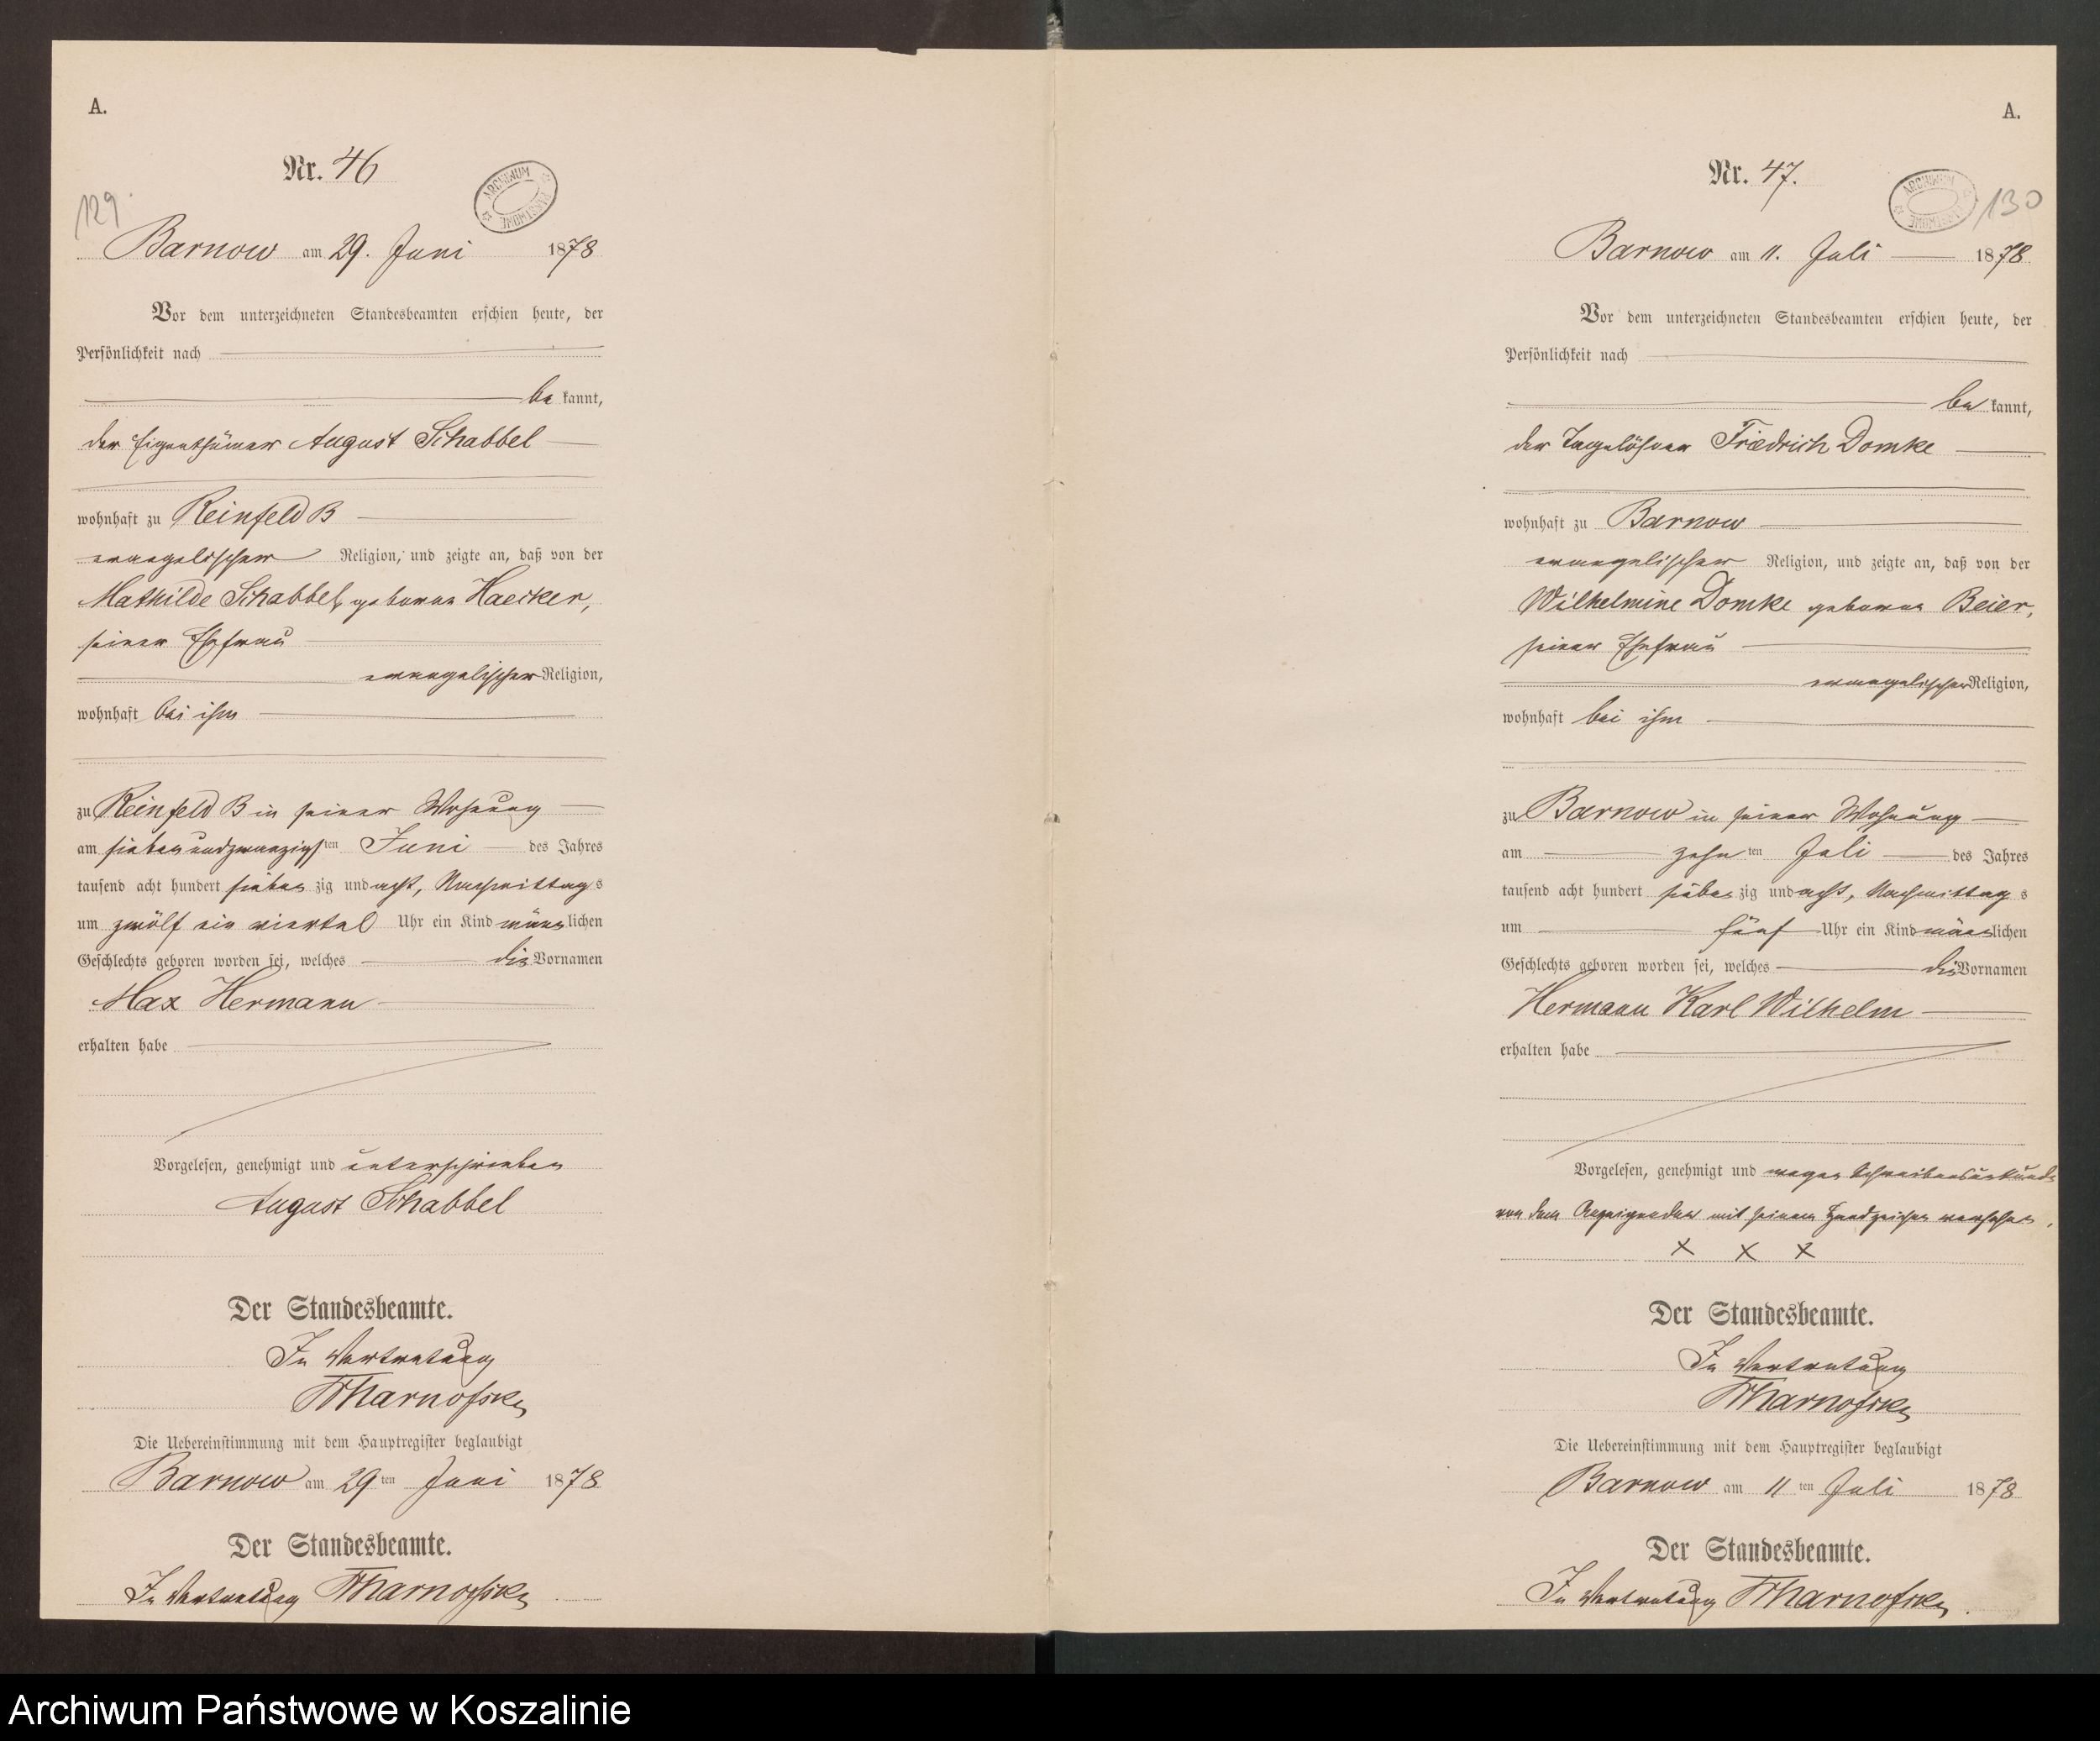 A.
Nr. 46
ARCHIWUM PAŃSTWOWE
129.
Barnow am 29. Juni 1878
Vor dem unterzeichneten Standesbeamten erschien heute, der
Persönlichkeit nach
be kannt,
der Eigenthümer August Schabbel
wohnhaft zu Reinfeld B
evangelischer Religion, und zeigte an, daß von der
Mathilde Schabbel, geborne Haecker,
seiner Ehefrau
evangelischer Religion,
wohnhaft bei ihm
zu Reinfeld B in seiner Wohnung
am siebenundzwanzigsten Juni des Jahres
tausend acht hundert sieben zig und acht, Nachmittags
um zwölf ein viertel Uhr ein Kind männlichen
Geschlechts geboren worden sei, welches die Vornamen
Max Hermann
erhalten habe
Vorgelesen, genehmigt und unterschrieben
August Schabbel
Der Standesbeamte.
In Vertretung
Die Uebereinstimmung mit dem Hauptregister beglaubigt
Barnow am 29ten Juni 1878
Der Standesbeamte.
In Vertretung
A.
Nr. 47.
ARCHIWUM PAŃSTWOWE
130
Barnow am 11. Juli 1878
Vor dem unterzeichneten Standesbeamten erschien heute, der
Persönlichkeit nach
be kannt,
der Tagelöhner Friedrich Domke
wohnhaft zu Barnow
evangelischer Religion, und zeigte an, daß von der
Wilhelmine Domke geborne Beier,
seiner Ehefrau
evangelischer Religion,
wohnhaft bei ihm
zu Barnow in seiner Wohnung
am zehn ten Juli des Jahres
tausend acht hundert sieben zig und acht, Nachmittags
um fünf Uhr ein Kind männlichen
Geschlechts geboren worden sei, welches die Vornamen
Hermann Karl Wilhelm
erhalten habe
Vorgelesen, genehmigt und wegen Schreibensunkunde
von dem Anzeigenden mit seinem Handzeichen versehen,
x x x
Der Standesbeamte.
In Vertretung
Die Uebereinstimmung mit dem Hauptregister beglaubigt
Barnow am 11 ten Juli 1878
Der Standesbeamte.
In Vertretung
Archiwum Państwowe w Koszalinie